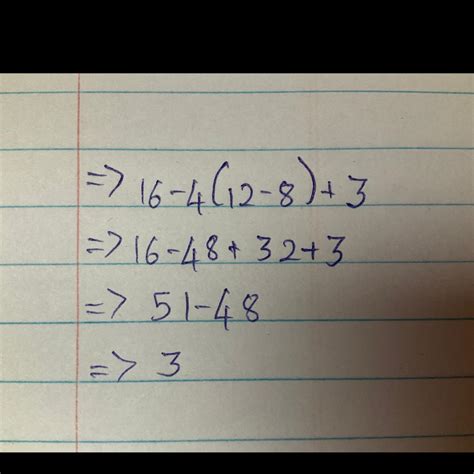 => 16-4(12-8)+3
=> 16-48+32+3
=> 51-48
=> 3